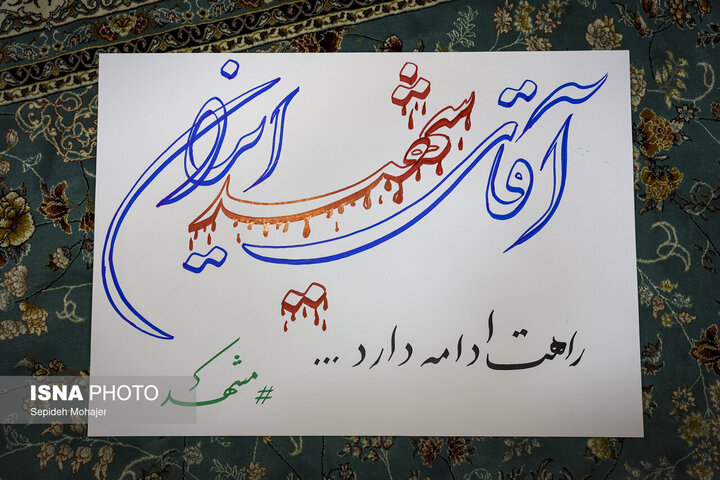 آقای شهید ایران
راهت ادامه دارد ...
#مشهد
ISNA PHOTO
Sepideh Mohajer
ISNA